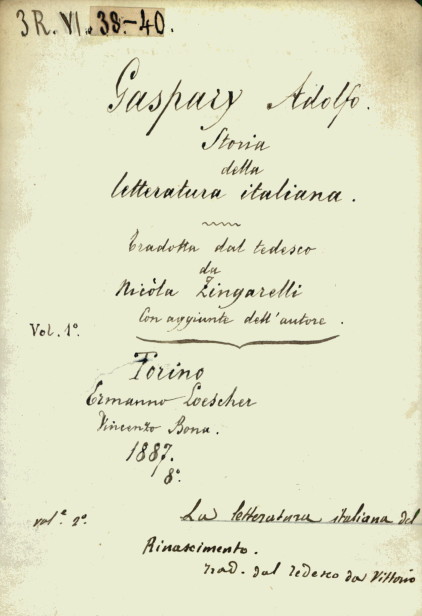 3R. VI. 38.-40.
Gaspary Adolfo.
Storia
della
letteratura italiana.
Tradotta dal tedesco
da
Nicòla Zingarelli
Con aggiunte dell'autore.
Vol. 1º.
Torino
Ermanno Loescher
Vincenzo Bona.
1887.
8º.
vol.e 2º. La letteratura italiana del
Rinascimento.
trad. dal tedesco da Vittorio